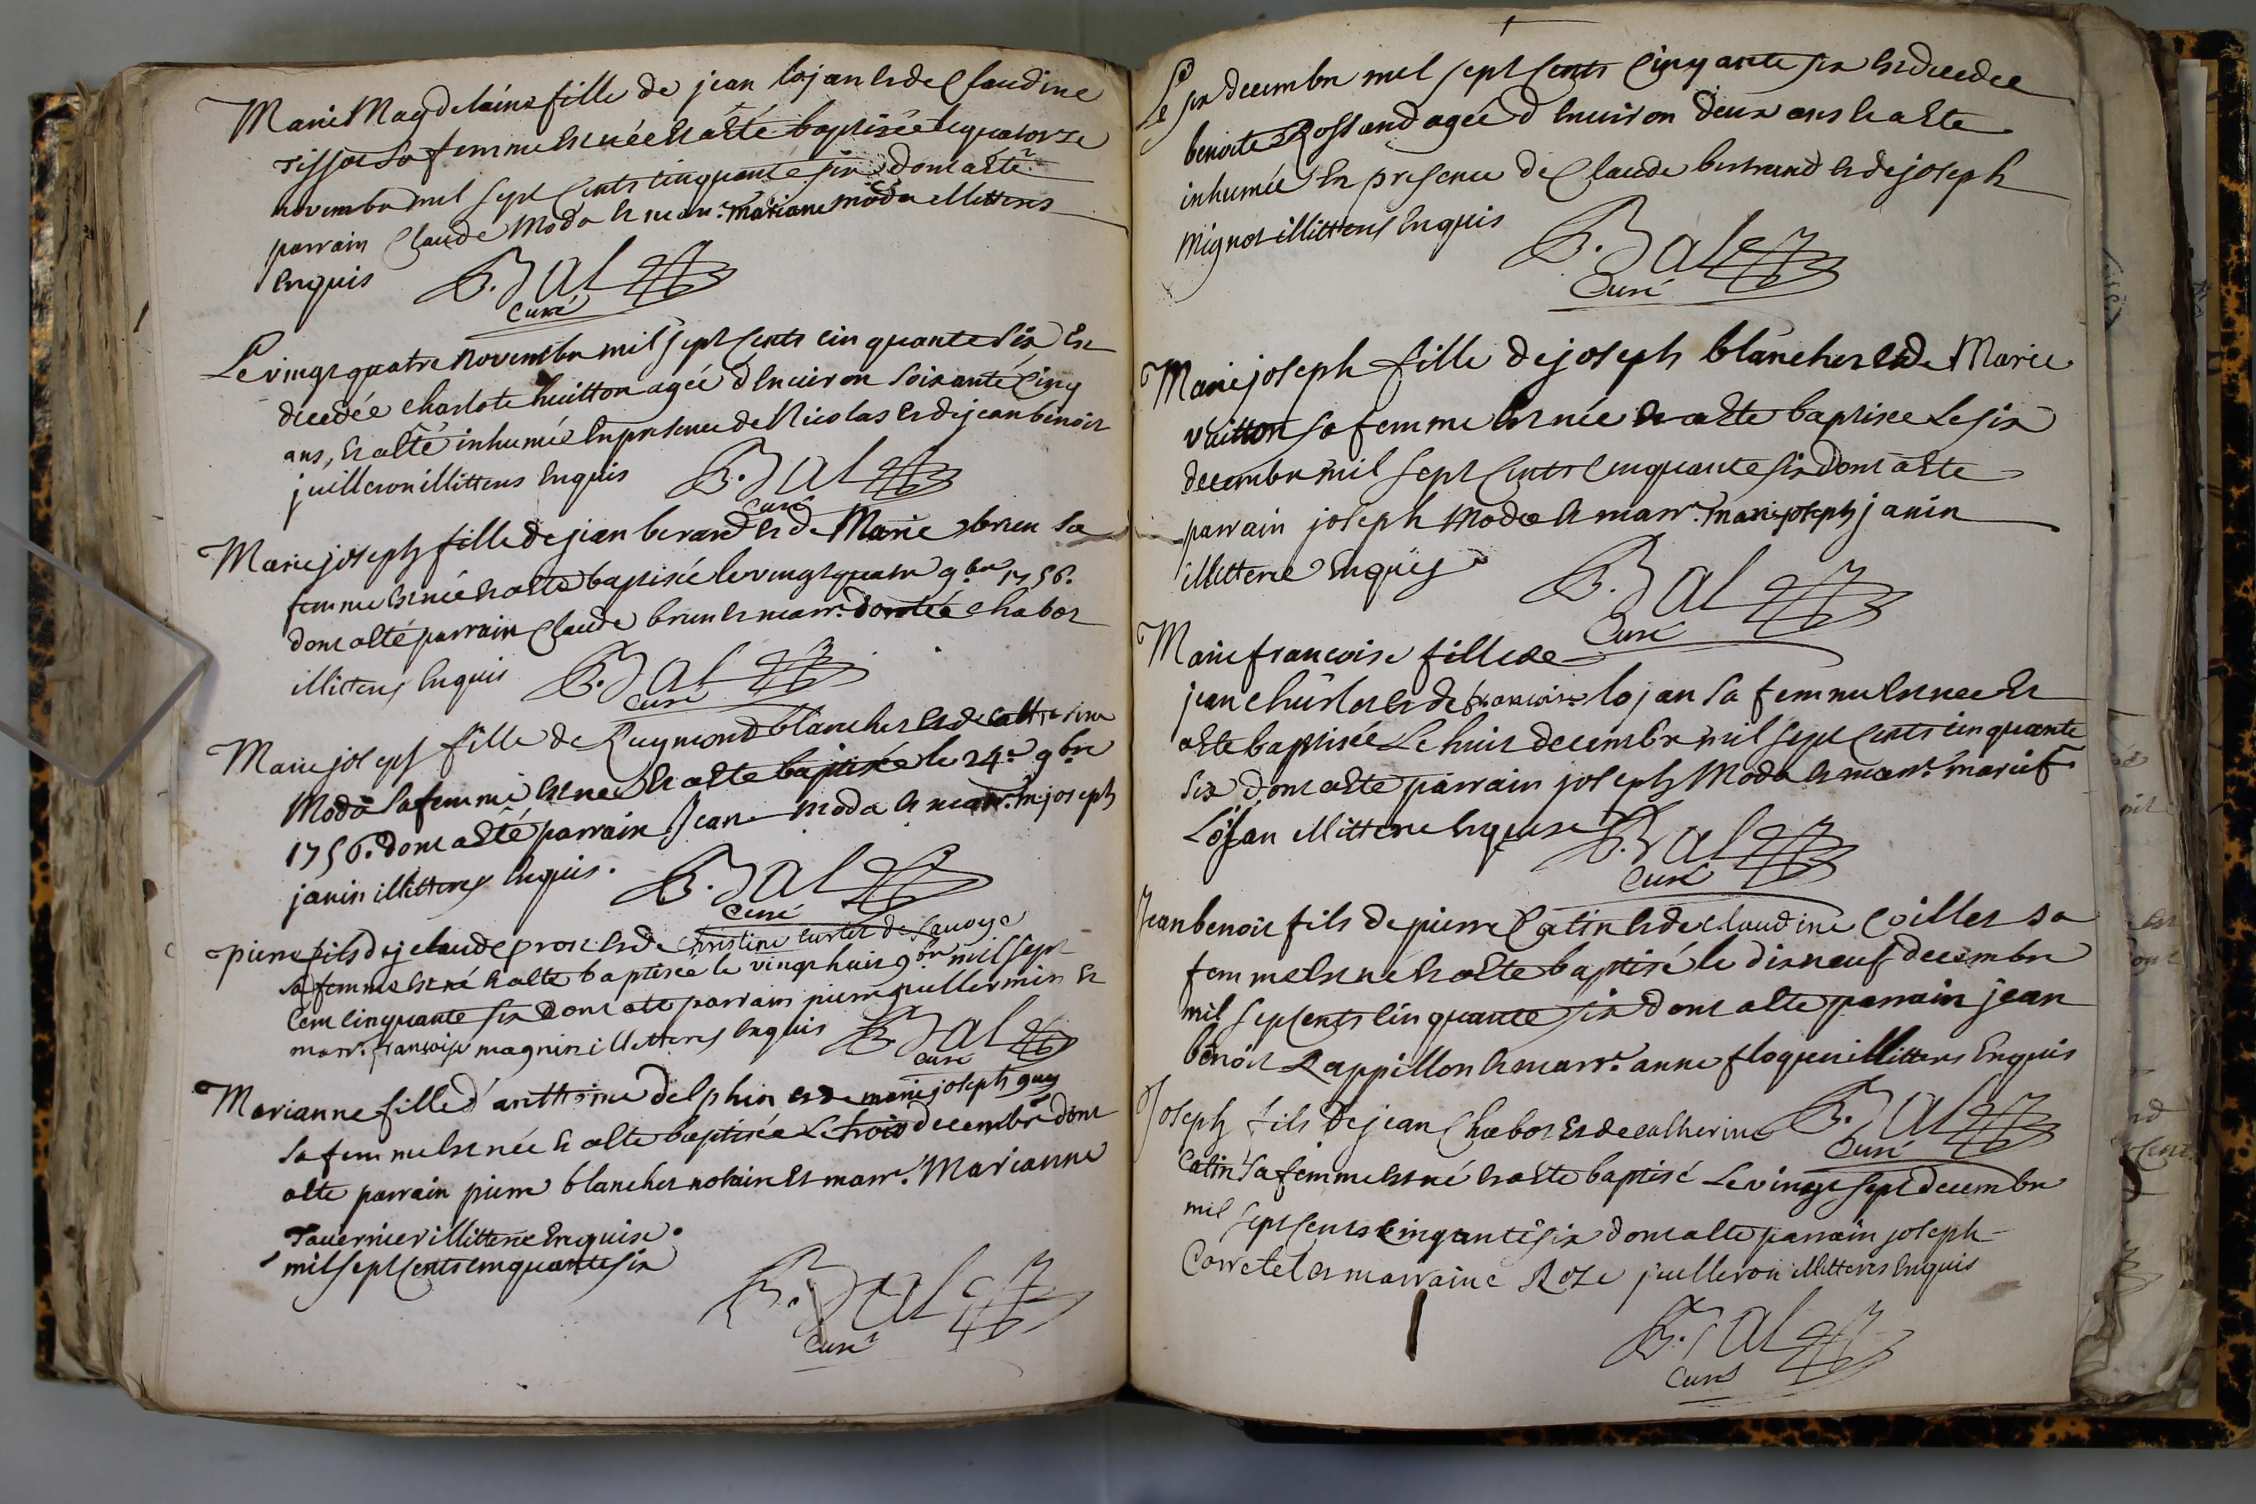 Marie Magdelaine fille de jean lojan et de Claudine
tissot sa femme est née et a été baptisée le quatorze
novembre mil sept cents cinquante six dont a été
parrain Claude Moda et marr.e mariane moda illitterés
enquis
B. Bal
curé
Le vingt quatre novembre mil sept cents cinquante six est
decedée charlote huitton agée d'environ soixante cinq
ans, et a été inhumée en presence de Nicolas et de jean benoit
juilleron illitterés enquis
B. Bal
curé
Marie joseph fille de jean berard et de Marie brun sa
femme est née et a été baptisée le vingt quatre 9.bre 1756.
dont a été parrain Claude brun et marr.e chabot
illitterés enquis
B. Bal
curé
Marie joseph fille de Reymond blanchet et de catherine
Moda sa femme est née et a été baptisée le 24.e 9.bre
1756. dont a été parrain jean moda et marr.e m. joseph
janin illitterés enquis.
B. Bal
curé
pierre fils de j claude prost et de christine curtet de Savoye
sa femme est né et a été baptisé le vingt huit 9.bre mil sept
cent cinquante six dont a été parrain pierre guillermin et
marr.e francoise magnin illitterés enquis
B. Bal
curé
Marianne fille d'anthoine delphin et de marie joseph guy
sa femme est née et a été baptisée Le trois decembre dont
a été parrain pierre blanchet notaire et marr.e Marianne
Tavernier illitterée enquise.
mil sept cents cinquante six
B. Bal
curé
Le six decembre mil sept cents cinquante six est decedée
benoite Rossand agée d'environ deux ans et a été
inhumée en presence de Claude bertrand et de joseph
mignot illitterés enquis
B. Bal
Curé
Marie joseph fille de joseph blanchet et de Marie
vuitton sa femme est née et a été baptisée Le six
decembre mil sept cents cinquante six dont a été
parrain joseph Moda et marr.e marie joseph janin
illitterée enquis
B. Bal
Curé
Marie francoise fille de
jean et de francoise lojan sa femme est née et
a été baptisée Le huit decembre mil sept cents cinquante
six dont a été parrain joseph Moda et marr.e marie f.
Lojan illitterée enquise
B. Bal
Curé
Jean benoit fils de pierre Catin et de claudine Coillet sa
femme est né et a été baptisé le dix neuf decembre
mil sept cents cinquante six dont a été parrain jean
benoit Rappillon et marr.e anne floquen illitterés enquis
B. Bal
Curé
Joseph fils de jean Chabot et de catherine
Catin sa femme est né et a été baptisé Le vingt sept decembre
mil sept cents cinquante six dont a été parrain joseph
Corretel et marraine Roze juilleron illitterés enquis
B. Bal
Curé